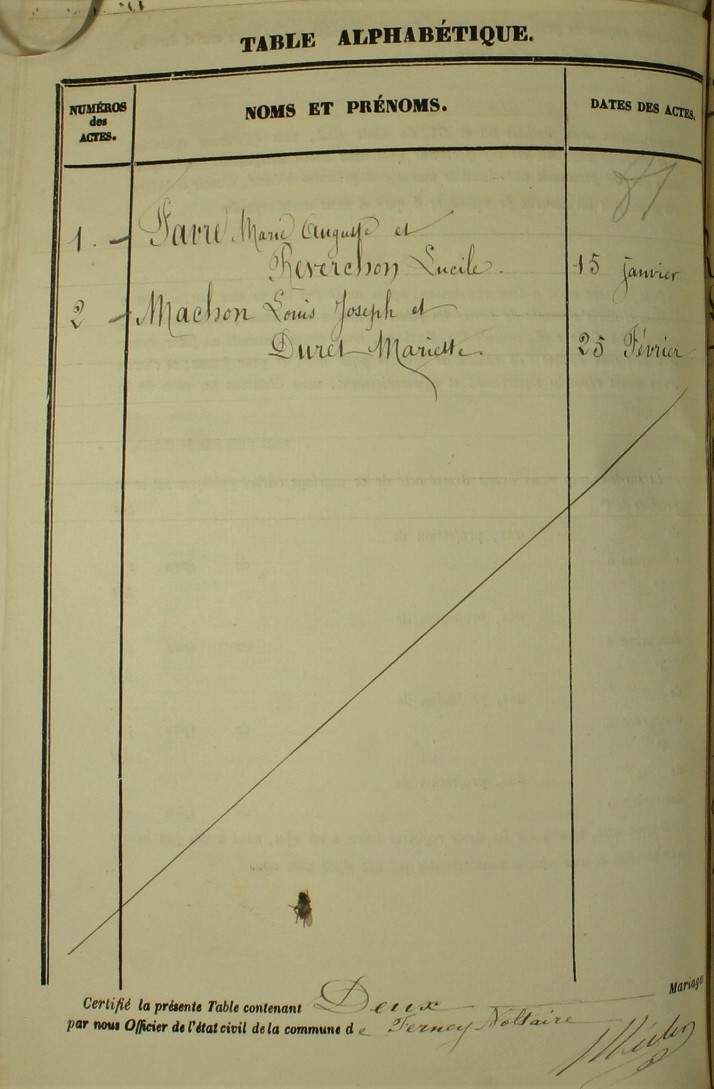 TABLE ALPHABÉTIQUE.
NUMÉROS
des
ACTES.
NOMS ET PRÉNOMS.
DATES DES ACTES.
1. Favre Marie Auguste et
Reverchon Lucile. 15 janvier
2 Machon Louis Joseph et
Duret Mariette. 25 Février
Certifié la présente Table contenant Deux Mariage
par nous Officier de l'état civil de la commune de Ferney Voltaire